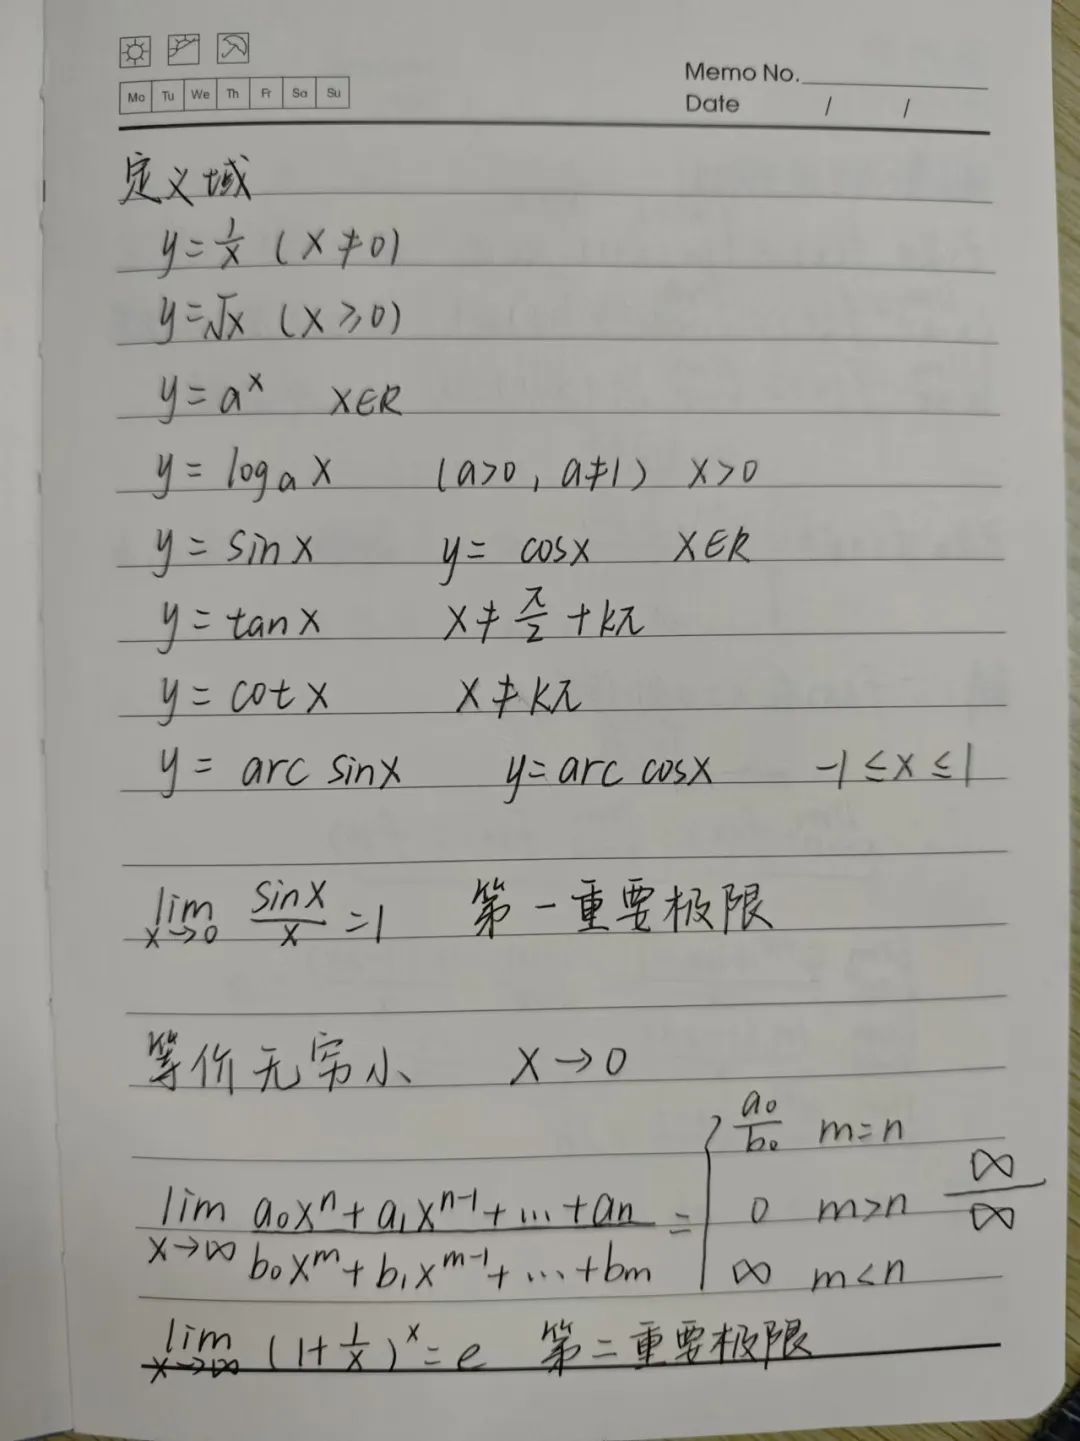 Memo No.
Mo Tu We Th Fr Sa Su
Date / /
定义域
y=1/x (x≠0)
y=√x (x≥0)
y=a^x x∈R
y=log_a x (a>0, a≠1) x>0
y=sinx y=cosx x∈R
y=tanx x≠π/2+kπ
y=cotx x≠kπ
y=arc sinx y=arc cosx -1≤x≤1
lim x→0 sinx/x=1 第一重要极限
等价无穷小 x→0
lim x→∞ (a₀xⁿ+a₁xⁿ⁻¹+…+aₙ)/(b₀xᵐ+b₁xᵐ⁻¹+…+bₘ) = { a₀/b₀ m=n
0 m>n ∞/∞
∞ m<n
lim x→∞ (1+1/x)^x=e 第二重要极限